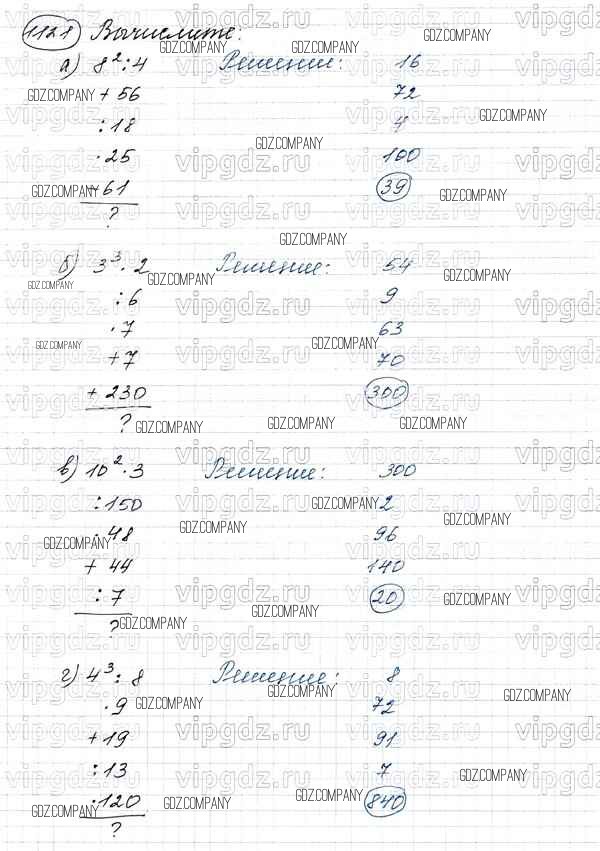 1121 Вычислите:
а) 8²:4 Решение: 16
+ 56 72
:18 4
·25 100
- 61 39
?
б) 3³·2 Решение: 54
:6 9
·7 63
+7 70
+ 230 300
?
в) 10²·3 Решение: 300
:150 2
·48 96
+ 44 140
:7 20
?
г) 4³:8 Решение: 8
·9 72
+19 91
:13 7
·120 840
?
vipgdz.ru
GDZ.COMPANY